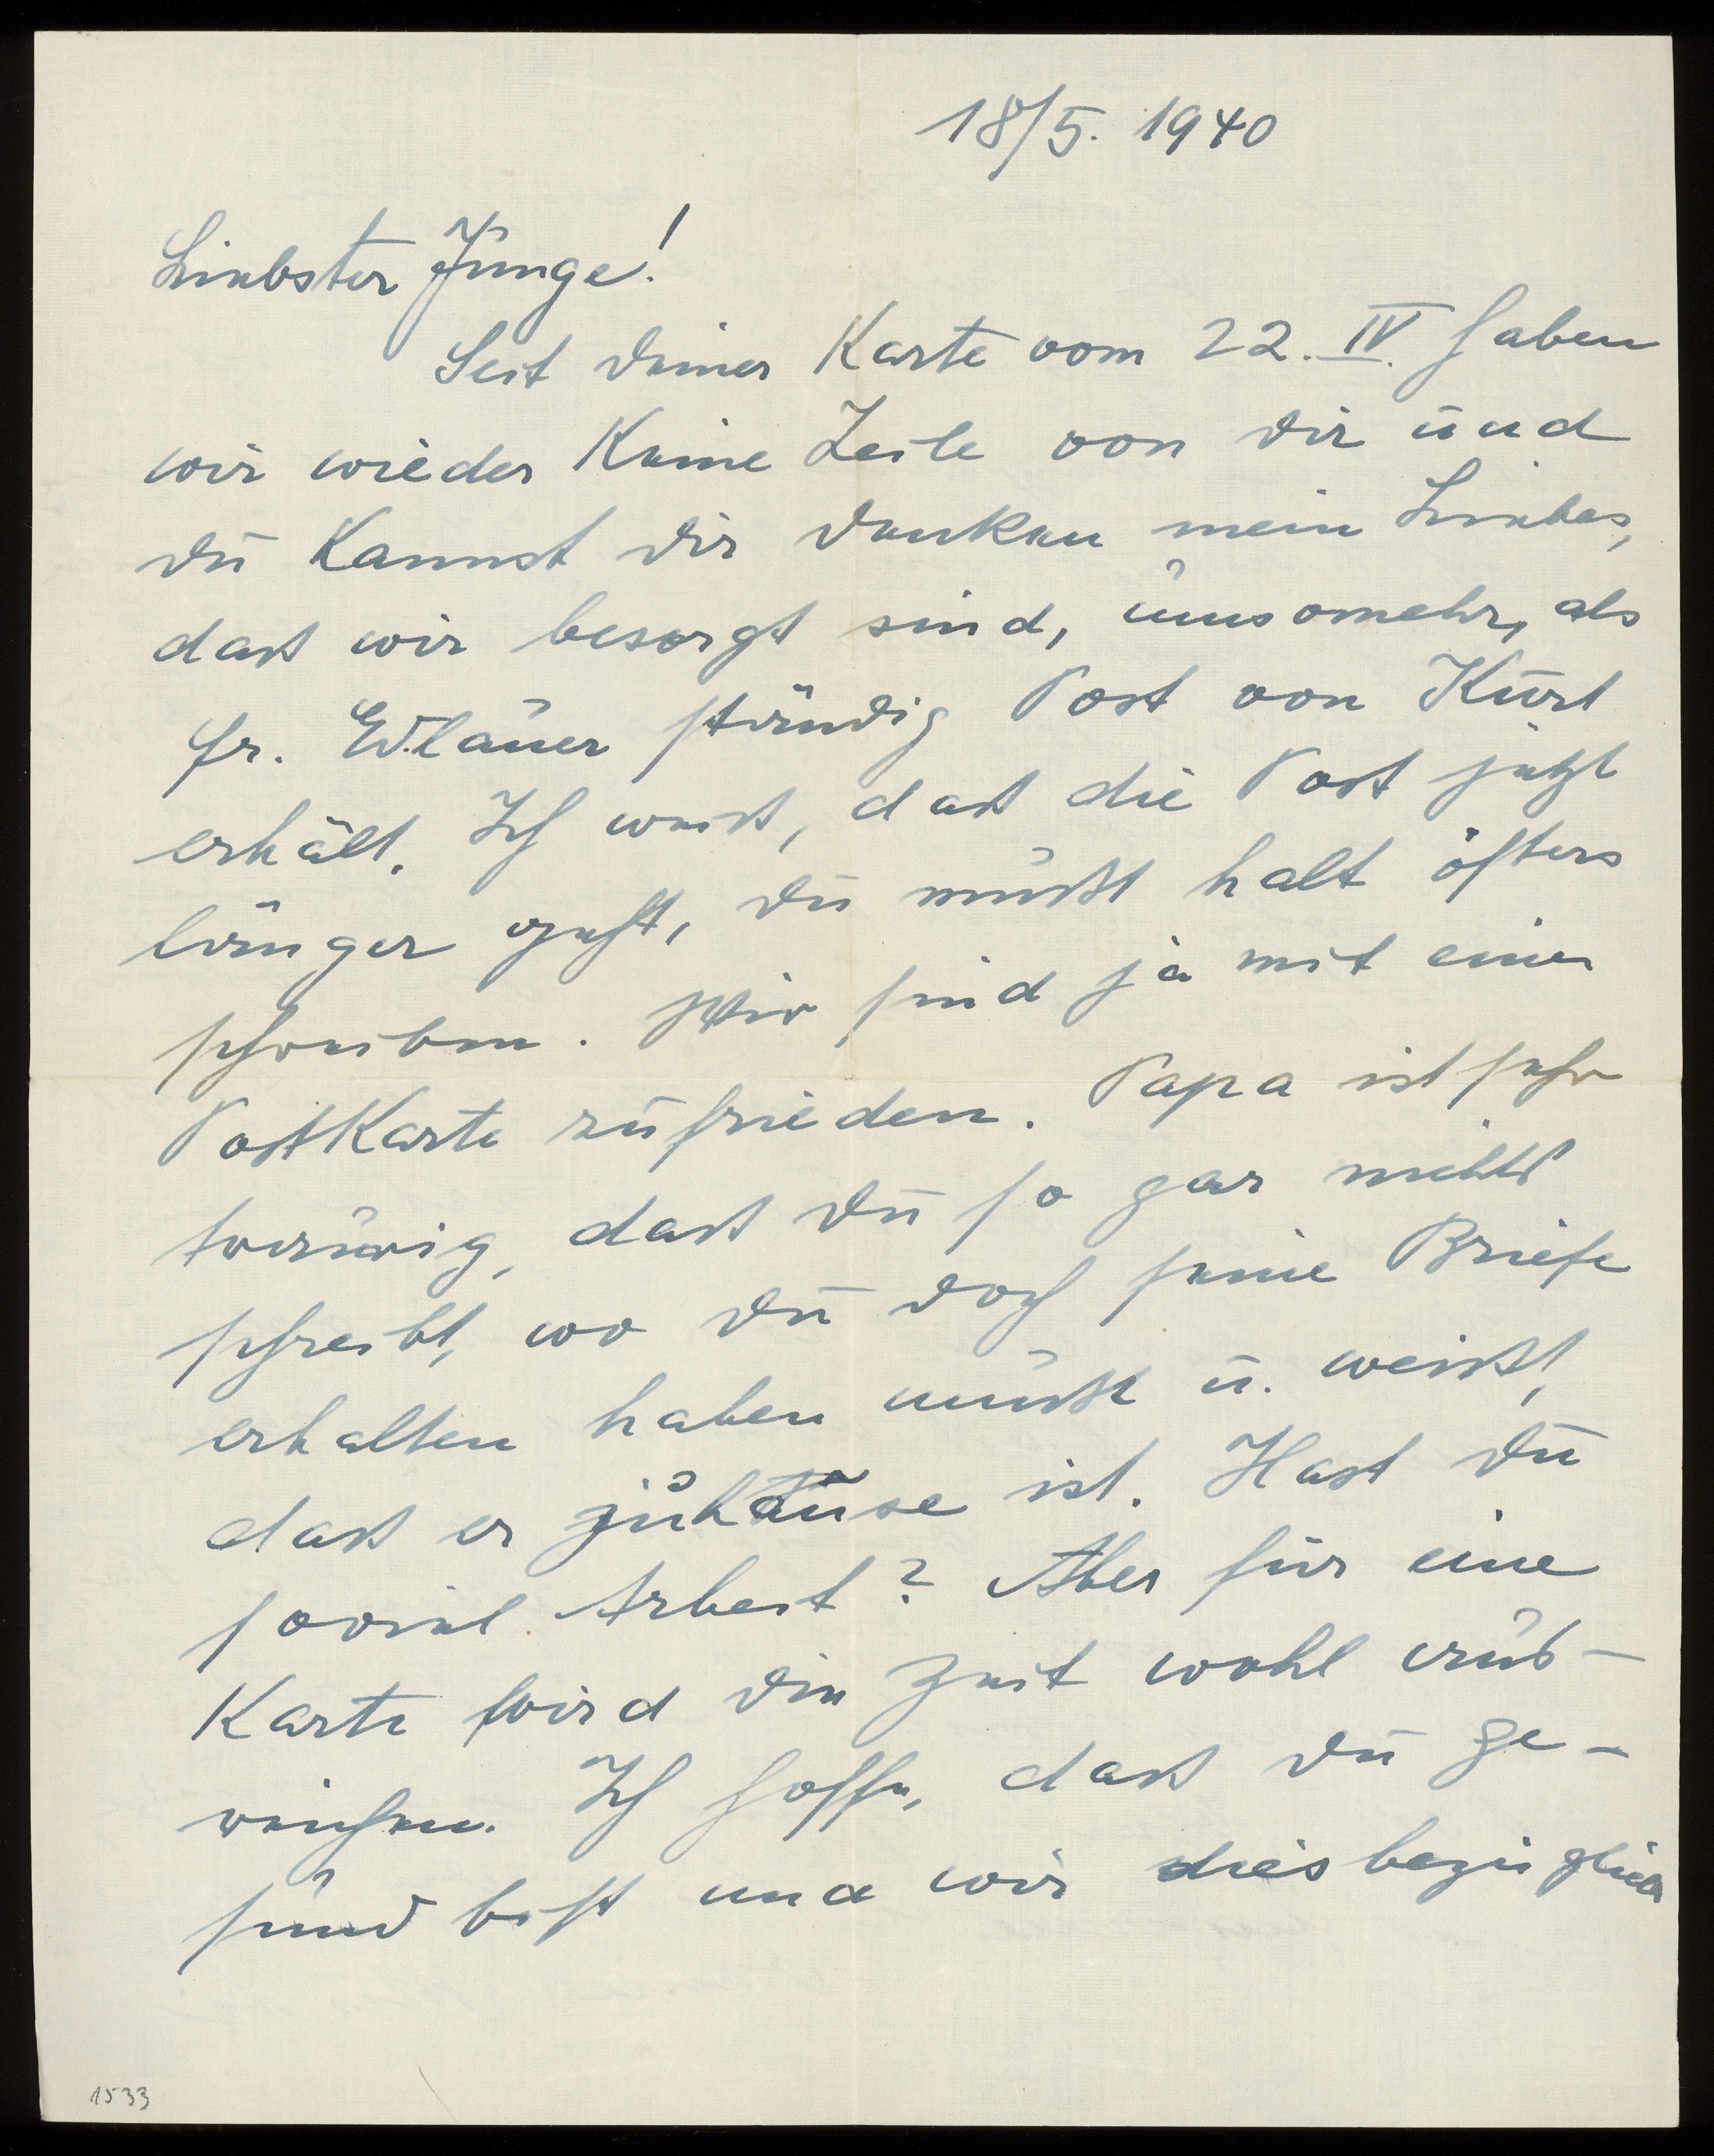 18/5. 1940
Liebster Junge!
Seit deiner Karte vom 22. IV. haben
wir wieder keine Zeile von dir und
du kannst dir denken mein Liebes,
dass wir besorgt sind, umsomehr, als
Fr. Edlauer ständig Post von Kurt
erhält. Ich weiss, dass die Post jetzt
länger geht, du müsst halt öfters
schreiben. Wir sind ja mit einer
Postkarte zufrieden. Papa ist sehr
traurig, dass du so gar nichts
schreibt, wo du doch seine Briefe
erhalten haben müsst u. weisst,
dass er zuhause ist. Hast du
soviel Arbeit? Aber für eine
Karte wird die Zeit wohl aus-
reichen. Ich hoffe, dass du ge-
sund bist und wir diesbezüglich
1533